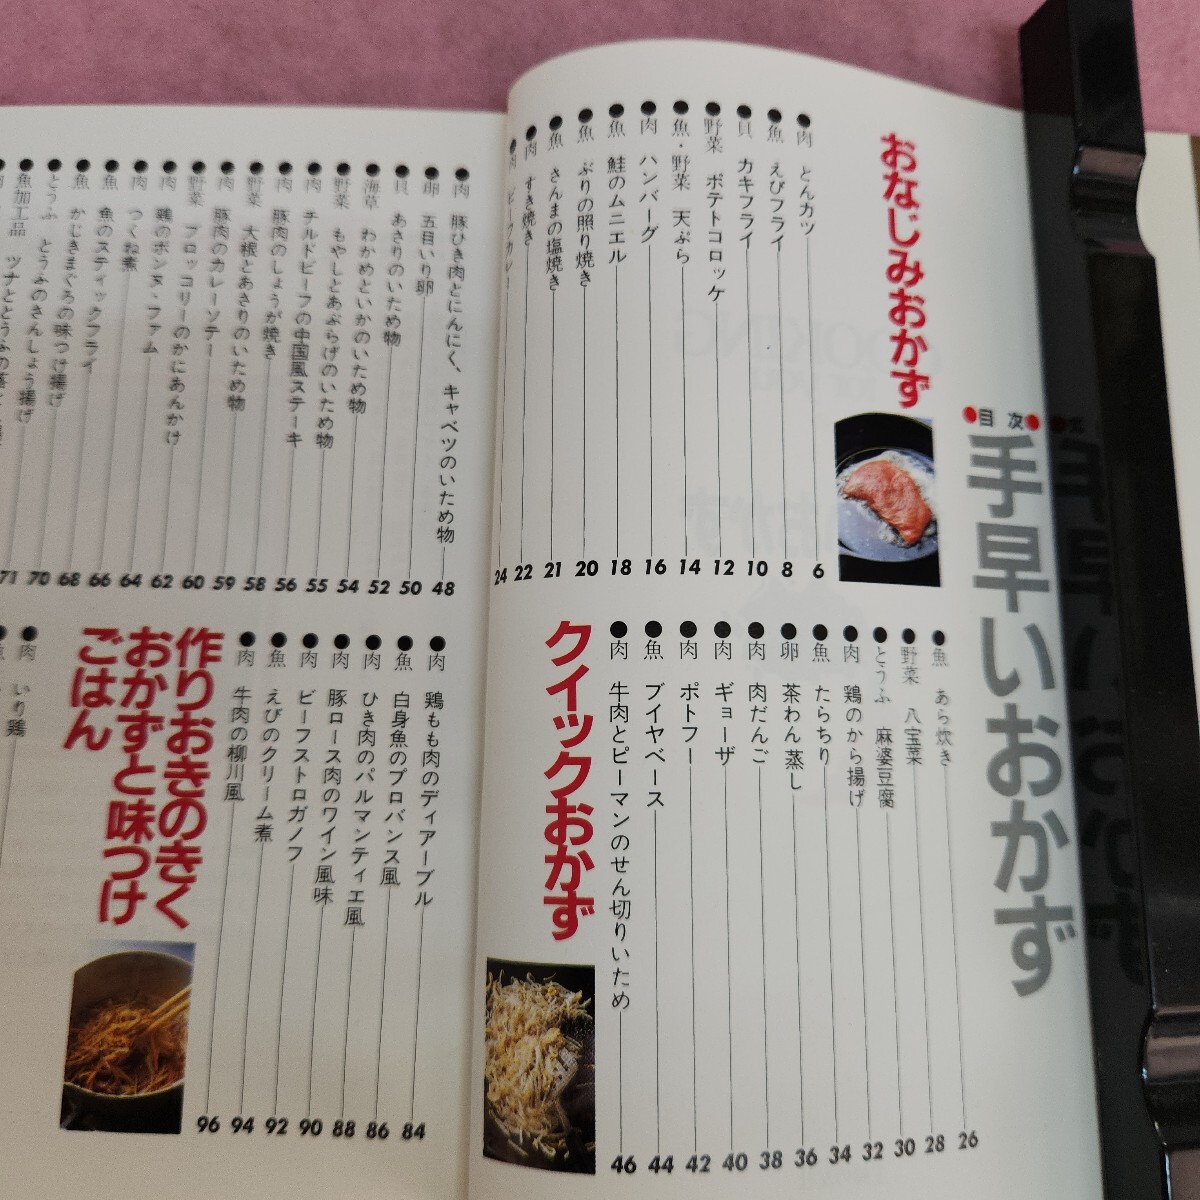 ●目次●
手早いおかず
おなじみおかず
●肉 とんカツ 6
●魚 えびフライ 8
●貝 カキフライ 10
●野菜 ポテトコロッケ 12
●魚・野菜 天ぷら 14
●肉 ハンバーグ 16
●魚 鮭のムニエル 18
●魚 ぶりの照り焼き 20
●魚 さんまの塩焼き 21
●肉 すき焼き 22
●肉 ビーフカレー 24
●魚 あら炊き 26
●野菜 八宝菜 28
●とうふ 麻婆豆腐 30
●肉 鶏のから揚げ 32
●魚 たらちり 34
●卵 茶わん蒸し 36
●肉 肉だんご 38
●肉 ギョーザ 40
●肉 ポトフー 42
●魚 ブイヤベース 44
●肉 牛肉とピーマンのせん切りいため 46
クイックおかず
●肉 豚ひき肉とにんにく、キャベツのいため物 48
●卵 五目いり卵 50
●貝 あさりのいため物 52
●海草 わかめといかのいため物 54
●野菜 もやしとあぶらげのいため物 55
●肉 チルドビーフの中国風ステーキ 56
●肉 豚肉のしょうが焼き 58
●野菜 大根とあさりのいため物 59
●肉 豚肉のカレーソテー 60
●野菜 ブロッコリーのかにあんかけ 62
●肉 鶏のボンヌ・ファム 64
●肉 つくね煮 66
●魚 魚のスティックフライ 68
●魚 かじきまぐろの味つけ揚げ 70
●とうふ とうふのぎんしょう揚げ 71
魚加工品 ツナととうふの落とし揚げ
●肉 鶏もも肉のディアーブル 84
●魚 白身魚のプロバンス風 86
●肉 ひき肉のパルマンティエ風 88
●肉 豚ロース肉のワイン風味 90
●肉 ビーフストロガノフ 92
●魚 えびのクリーム煮 94
●肉 牛肉の柳川風 96
作りおきのきく
おかずと味つけ
ごはん
●肉 いり鶏